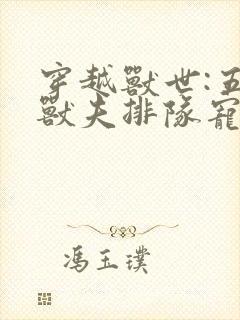 穿越獸世:五
獸夫排隊寵
馮玉璞